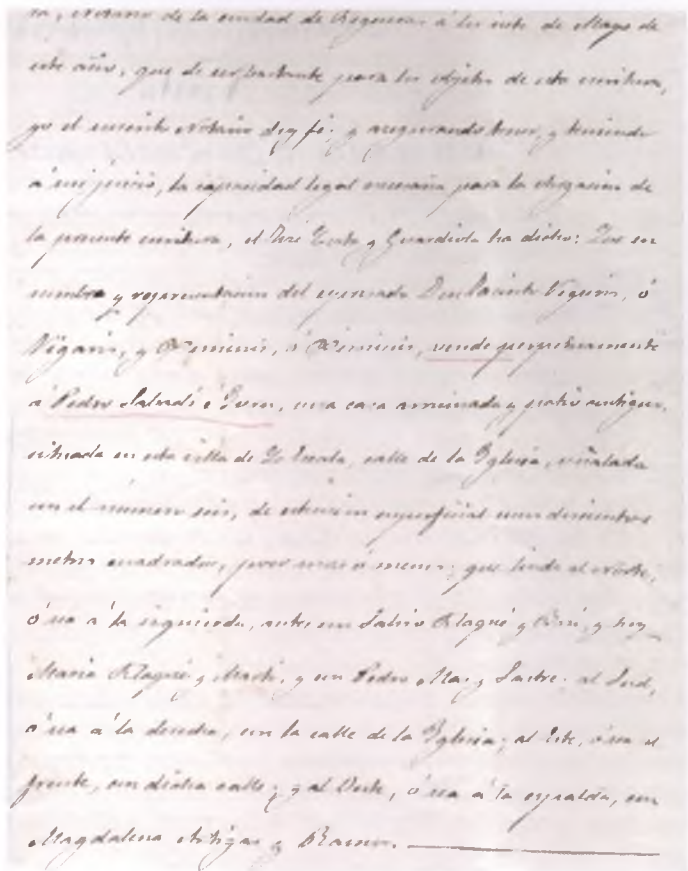 ra, Notario de la ciudad de Figueras á los siete de Mayo de
este año, que de ser bastante para los objetos de esta escritura,
yo el suscrito Notario doy fé; y asegurando tener, y teniendo
á mi juicio, la capacidad legal necesaria para la otorgacion de
la presente escritura, el y Guardiola ha dicho: Que en
nombre y representacion del expresado Don Jacinto Viguris, ó
Vigaris, y vende perpetuamente
á Pedro Saladi é una casa arruinada y patio antiguo,
situada en esta villa de La Escala, calle de la Yglesia, señalada
con el número seis, de estension superficial unos doscientos
metros cuadrados, poco mas ó menos; que linda al Norte,
ó sea á la izquierda, antes con Salvio y hoy
Maria y Martí, y con Pedro Mas y Sastre; al Sud,
ó sea á la derecha, con la calle de la Yglesia; al Este, ó sea al
frente, con dicha calle; y al Oeste, ó sea á la espalda, con
Magdalena Artigas y